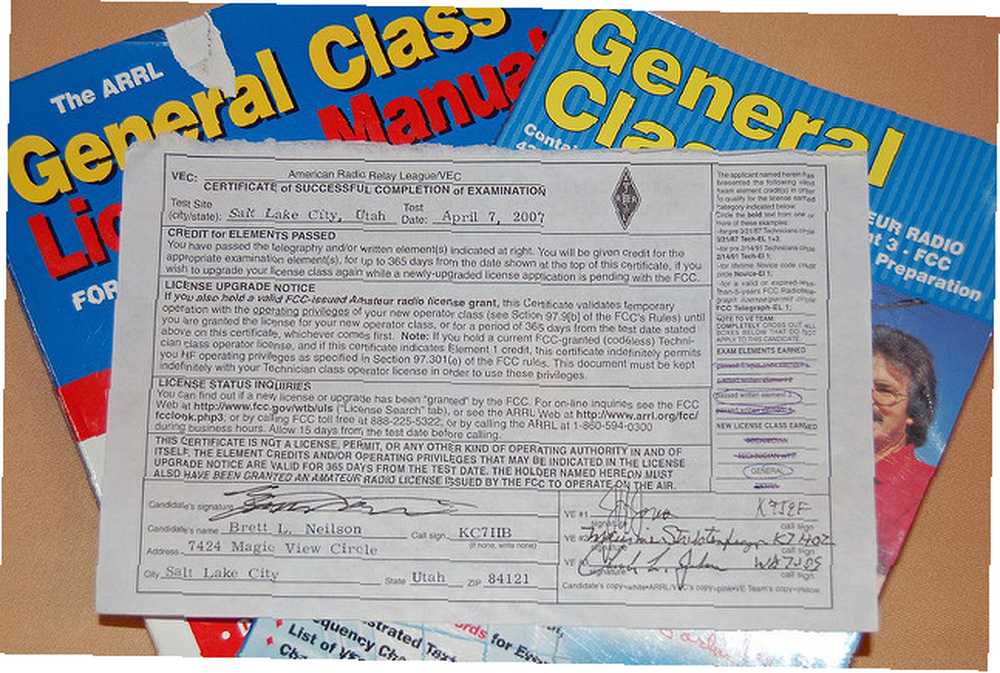 The ARRL
General Class
Manual
General
Class
FOR
EUR RADIO
nt 3 - FCC
Preparation
VEC: American Radio Relay League/VEC
CERTIFICATE of SUCCESSFUL COMPLETION of EXAMINATION
Test Site
(city/state): Salt Lake City, Utah Test Date: April 7, 2007
CREDIT for ELEMENTS PASSED
You have passed the telegraphy and/or written element(s) indicated at right. You will be given credit for the
appropriate examination element(s), for up to 365 days from the date shown at the top of this certificate, if you
wish to upgrade your license class again while a newly-upgraded license application is pending with the FCC.
LICENSE UPGRADE NOTICE
If you also hold a valid FCC-issued Amateur radio license grant, this Certificate validates temporary
operation with the operating privileges of your new operator class (see Sction 97.9[b] of the FCC's Rules) until
you are granted the license for your new operator class, or for a period of 365 days from the test date stated
above on this certificate, whichever comes first. Note: If you hold a current FCC-granted (codeless) Techni-
cian class operator license, and if this certificate indicates Element 1 credit, this certificate indefinitely permits
you HF operating privileges as specified in Section 97.301(e) of the FCC rules. This document must be kept
indefinitely with your Technician class operator license in order to use these privileges.
LICENSE STATUS INQUIRIES
You can find out if a new license or upgrade has been "granted" by the FCC. For on-line inquiries see the FCC
Web at http://www.fcc.gov/wtb/uls ("License Search" tab), or see the ARRL Web at http://www.arrl.org/fcc/
fcclook.php3; or by calling FCC toll free at 888-225-5322; or by calling the ARRL at 1-860-594-0300
during business hours. Allow 15 days from the test date before calling.
THIS CERTIFICATE IS NOT A LICENSE, PERMIT, OR ANY OTHER KIND OF OPERATING AUTHORITY IN AND OF
ITSELF. THE ELEMENT CREDITS AND/OR OPERATING PRIVILEGES THAT MAY BE INDICATED IN THE LICENSE
UPGRADE NOTICE ARE VALID FOR 365 DAYS FROM THE TEST DATE. THE HOLDER NAMED HEREON MUST
ALSO HAVE BEEN GRANTED AN AMATEUR RADIO LICENSE ISSUED BY THE FCC TO OPERATE ON THE AIR.
The applicant named herein has
presented the following valid
exam element credit(s) in order
to qualify for the license earned
category indicated below.
Circle the bold text from one or
more of these examples:
-for pre 3/21/87 Technicians circle
3/21/87 Tech-EL 1+3.
-for pre 2/14/91 Technicians circle
2/14/91 Tech-El 1;
-for lifetime Novice code credit
circle Novice-El 1;
-for a valid or expired-less-
than-5-years FCC Radioteleg-
raph license/permit circle
FCC Telegraph-EL 1;
NOTE TO VE TEAM:
COMPLETELY CROSS OUT ALL
BOXES BELOW THAT DO NOT
APPLY TO THIS CANDIDATE.
EXAM ELEMENTS EARNED
passed written element 3
NEW LICENSE CLASS EARNED
TECHNICIAN
GENERAL
Candidate's signature
Candidate's name Brett L. Neilson Call sign KC7HB
(If none, write none)
Address 7424 Magic View Circle
City Salt Lake City State Utah ZIP 84121
VE #1
signature call sign
VE #2
signature call sign
VE #3
signature call sign
Candidate's copy=white•ARRL/VEC's copy=pink•VE Team's copy=yellow
strated Text
List of
for